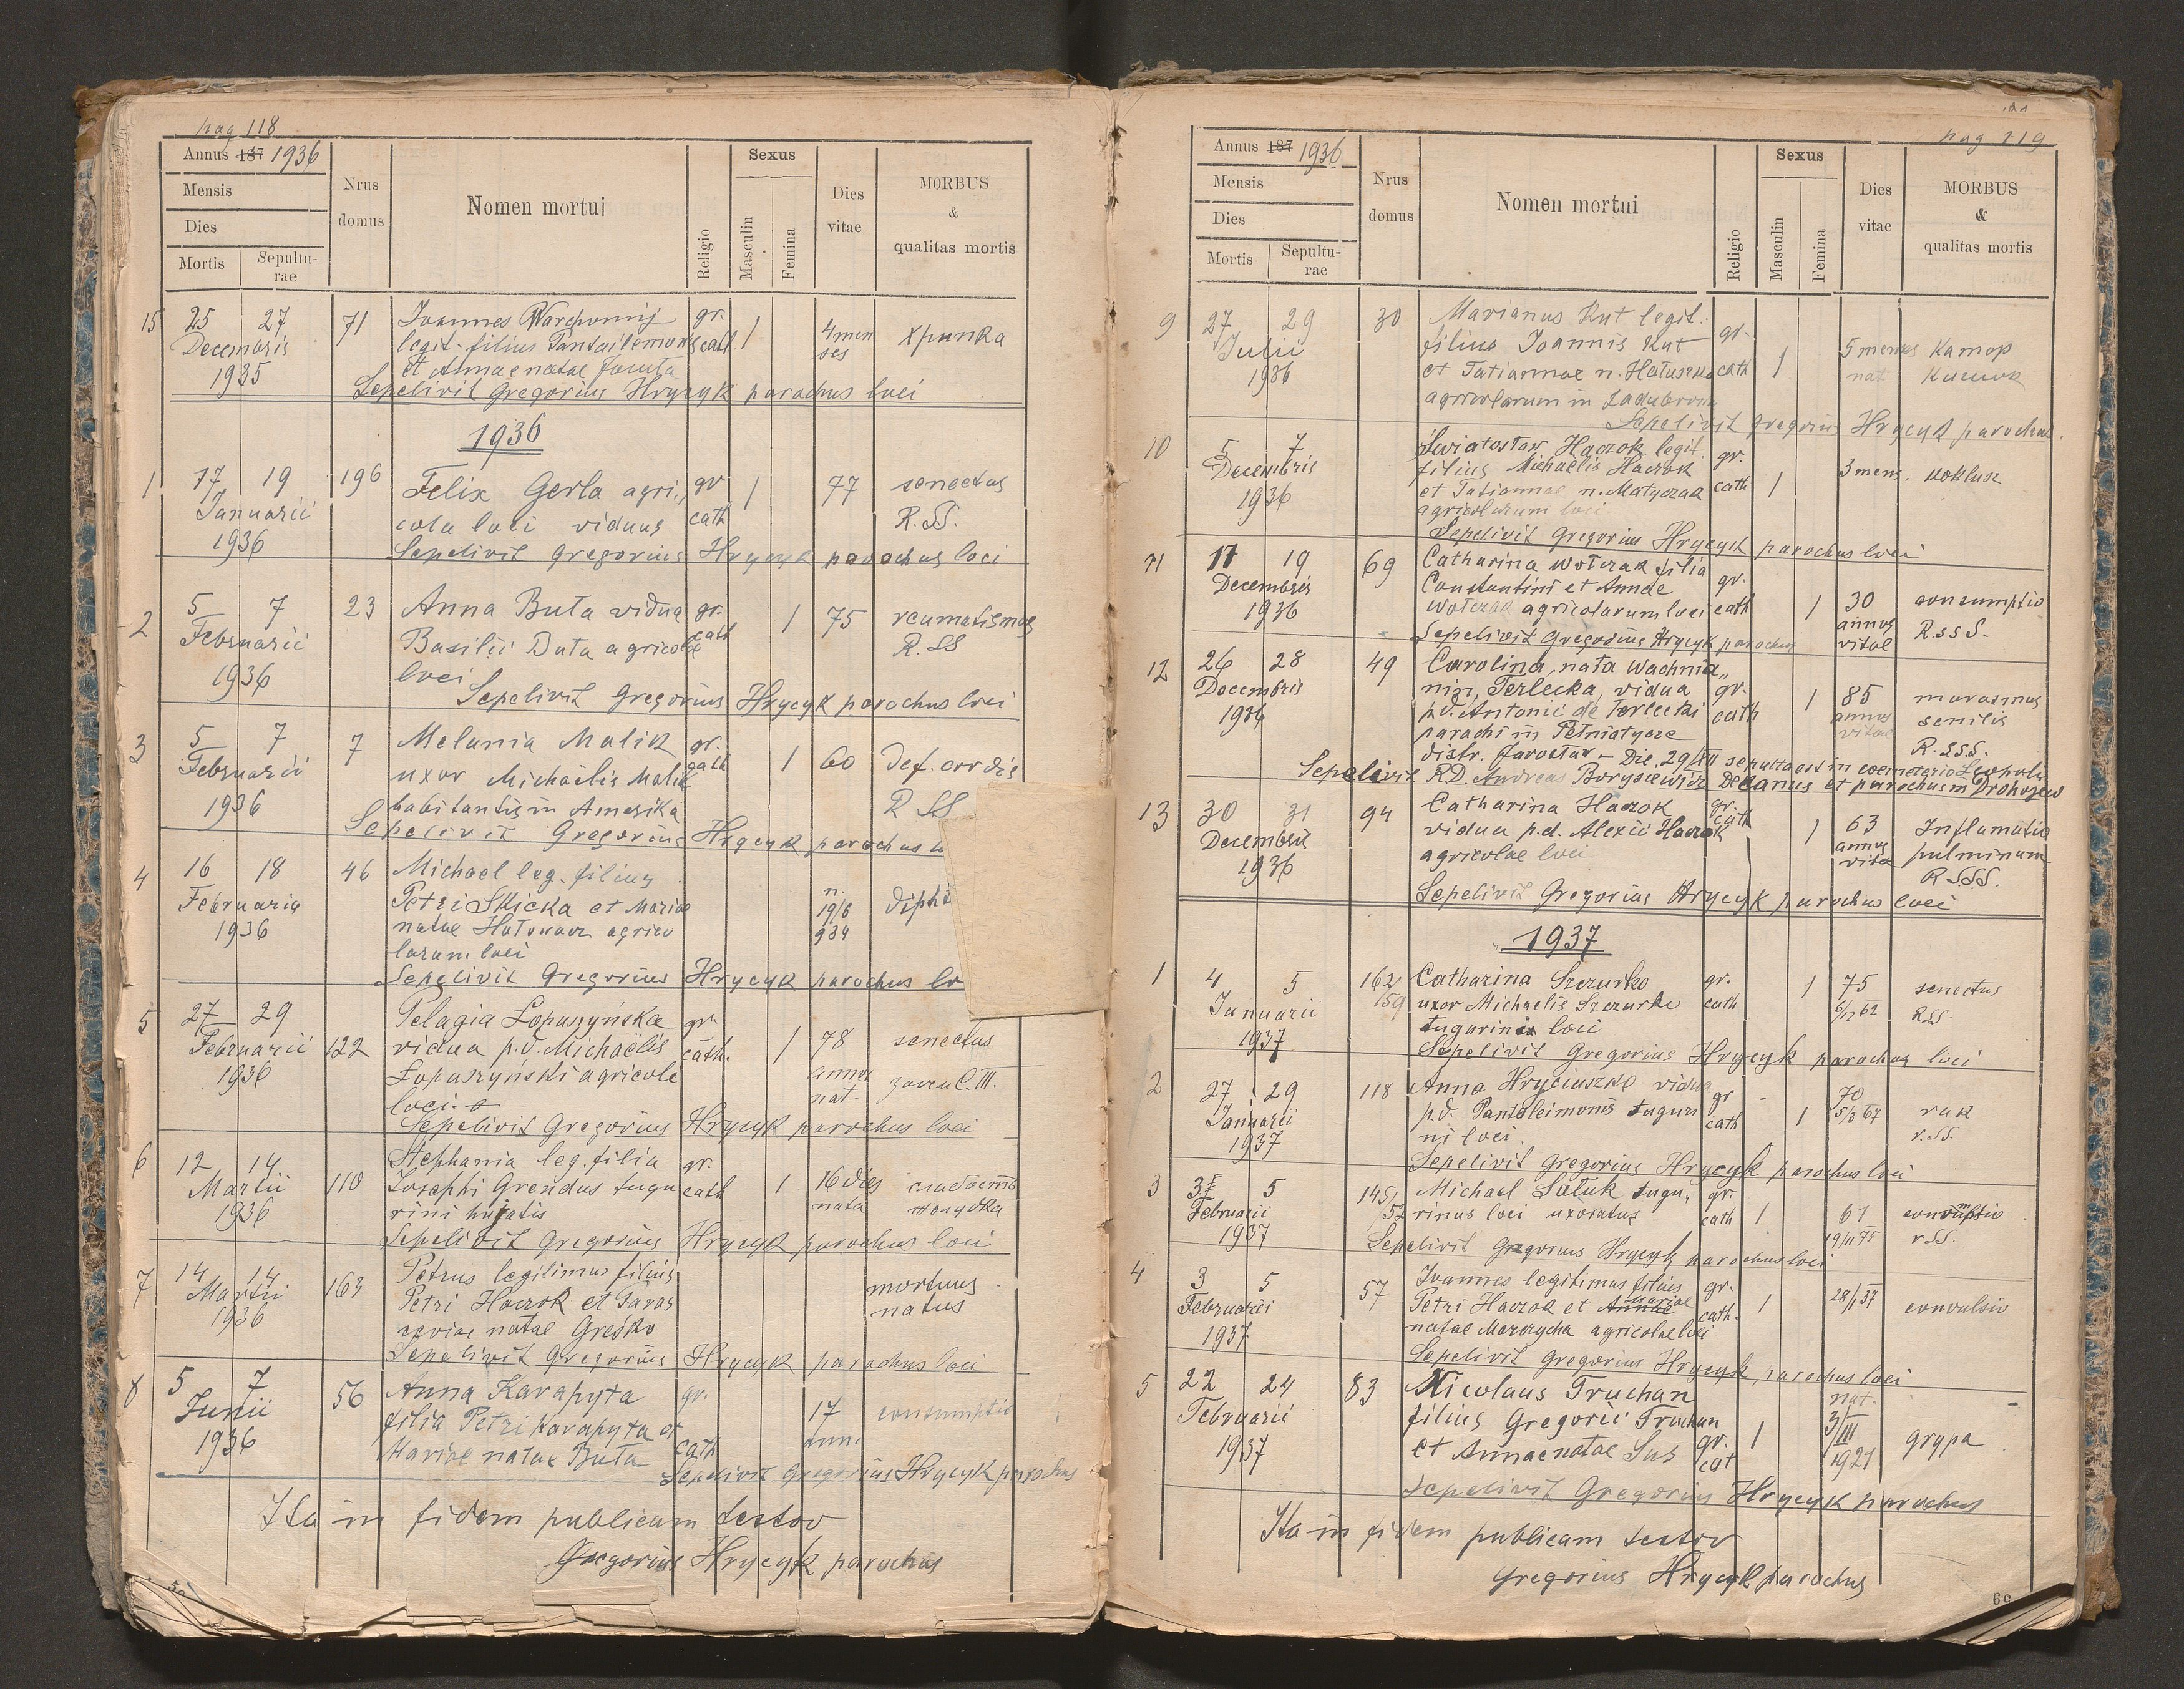 pag 118
Annus 187 1936
Mensis
Dies
Mortis
Sepultu-
rae
Nrus
domus
Nomen mortui
Religio
Sexus
Masculin
Femina
Dies
vitae
MORBUS
&
qualitas mortis
15 25 27 71 Ioannes Warchomij gr. 1 4 men
Decembris legit. filius Pantaleimonis cath. ses
1935 et Annae natae
Sepelivit Gregorius Hrycyk parochus loci
1936
1 17 19 196 Felix Gerla agri, gr 1 77 senectus
Ianuarii cola loci viduus cath R. SS.
1936
Sepelivit Gregorius Hrycyk parochus loci
2 5 7 23 Anna Buta vidua gr. 1 75 reumatismus
Februarii Basilii Buta agricolae cath R. SS
1936 loci
Sepelivit Gregorius Hrycyk parochus loci
3 5 7 7 Melania Malik gr. 1 60 Def. cordis
Februarii uxor Michaëlis Malik cath
1936 habitantis in Amerika R SS
Sepelivit Gregorius Hrycyk parochus
4 16 18 46 Michael leg. filius n.
Februariu Petri Skicka et Mariae 19/6
1936 natae agrico 934
larum loci
Sepelivit Gregorius Hrycyk parochus lo
5 27 29 122 Pelagia Łopuszyńska gr. 1 78 senectus
Februarii vidua p.d. Michaëlis cath. annos
1936 Łopuszyński agricole nat.
loci.
Sepelivit Gregorius Hrycyk parochus loci
6 12 14 110 Stephania leg. filia gr. 1 16 dies
Martii Iosephi Grendus tugu cath nata
1936 rini huiatis
Sepelivit Gregorius Hrycyk parochus loci
7 14 14 163 Petrus legitimus filius mortuus
Martii Petri Haczok et Paras natus
1936 ceviae natae Greśko
Sepelivit Gregorius Hrycyk parochus loci
8 5 7 56 Anna Karapyta gr. 17 consumptio
Junii filia Petri Karapyta et ann.
1936 Mariae natae Buta cath
Sepelivit Gregorius Hrycyk parochus
Ita in fidem publicam testor
Gregorius Hrycyk parochus
pag 119
Annus 187 1936
Mensis
Dies
Mortis
Sepultu-
rae
Nrus
domus
Nomen mortui
Religio
Sexus
Masculin
Femina
Dies
vitae
MORBUS
&
qualitas mortis
9 27 29 30 Marianus Kut legit. gr. 1 5 menses
Iulii filius Ioannis Kut nat
1936 et Tatiannae n. Hatuszka cath
agricolarum in Zadubrow
Sepelivit Gregorius Hrycyk parochus.
10 5 7 Światosław Haczok legit. gr. 1 3 mens. koklusz
Decembris filius Michaëlis Haczok
1936 et Tatiannae n. Matyczak cath
agricolarum loci
Sepelivit Gregorius Hrycyk parochus loci
11 17 19 69 Catharina Wołczak filia gr. 1 30 consumptio
Decembris Constantini et Annae annos R.SSS.
1936 Wołczak agricolarum loci cath vitae
Sepelivit Gregorius Hrycyk parochus
12 26 28 49 Carolina nata Wachnia„ gr. 1 85 marasmus
Decembris nin, Terlecka, vidua annos senilis
1936 p.d. Antonii de Terlecki cath vitae R.SSS.
parochi in Pełniatycze
distr. Jarosław – Die 29/XII sepulta est in coemeterio Leopoli
Sepelivit R.D. Andreas Borysiewicz Decanus et parochus in Drohojew
13 30 31 94 Catharina Haczok gr. cath 1 63 Inflamatio
Decembris vidua p.d. Alexii Haczok annos pulminum
1936 agricolae loci vitae R SSS.
Sepelivit Gregorius Hrycyk parochus loci
1937
1 4 5 162 Catharina Szczurko gr. 1 75 senectus
Ianuarii 159 uxor Michaelis Szczurko cath 6/12 62 R.SS.
1937 tugurinis loci
Sepelivit Gregorius Hrycyk parochus loci
2 27 29 118 Anna Hryciuszko vidua gr 1 70 rak
Januarii p.d. Pantaleimonis tuguri cath r.SS.
1937 ni loci.
Sepelivit Gregorius Hrycyk parochus loci
3 3 5 145 Michael Sałuk tugu, gr. 1 61 consumptio
Februarii rinus loci uxoratus cath 19/11 75 r.SS.
1937
Sepelivit Gregorius Hrycyk parochus loci
4 3 5 57 Ioannes legitimus filius gr. 1 28/1 37 convulsio
Februarii Petri Haczok et Annae Mariae cath.
1937 natae Marzycha agricolae loci
Sepelivit Gregorius Hrycyk parochus loci
5 22 24 83 Nicolaus Truchan nat.
Februarii filius Gregorii Truchan gr. 1 3/III grypa
1937 et Annae natae Sus cat 1921
Sepelivit Gregorius Hrycyk parochus
Ita in fidem publicam testor
Gregorius Hrycyk parochus